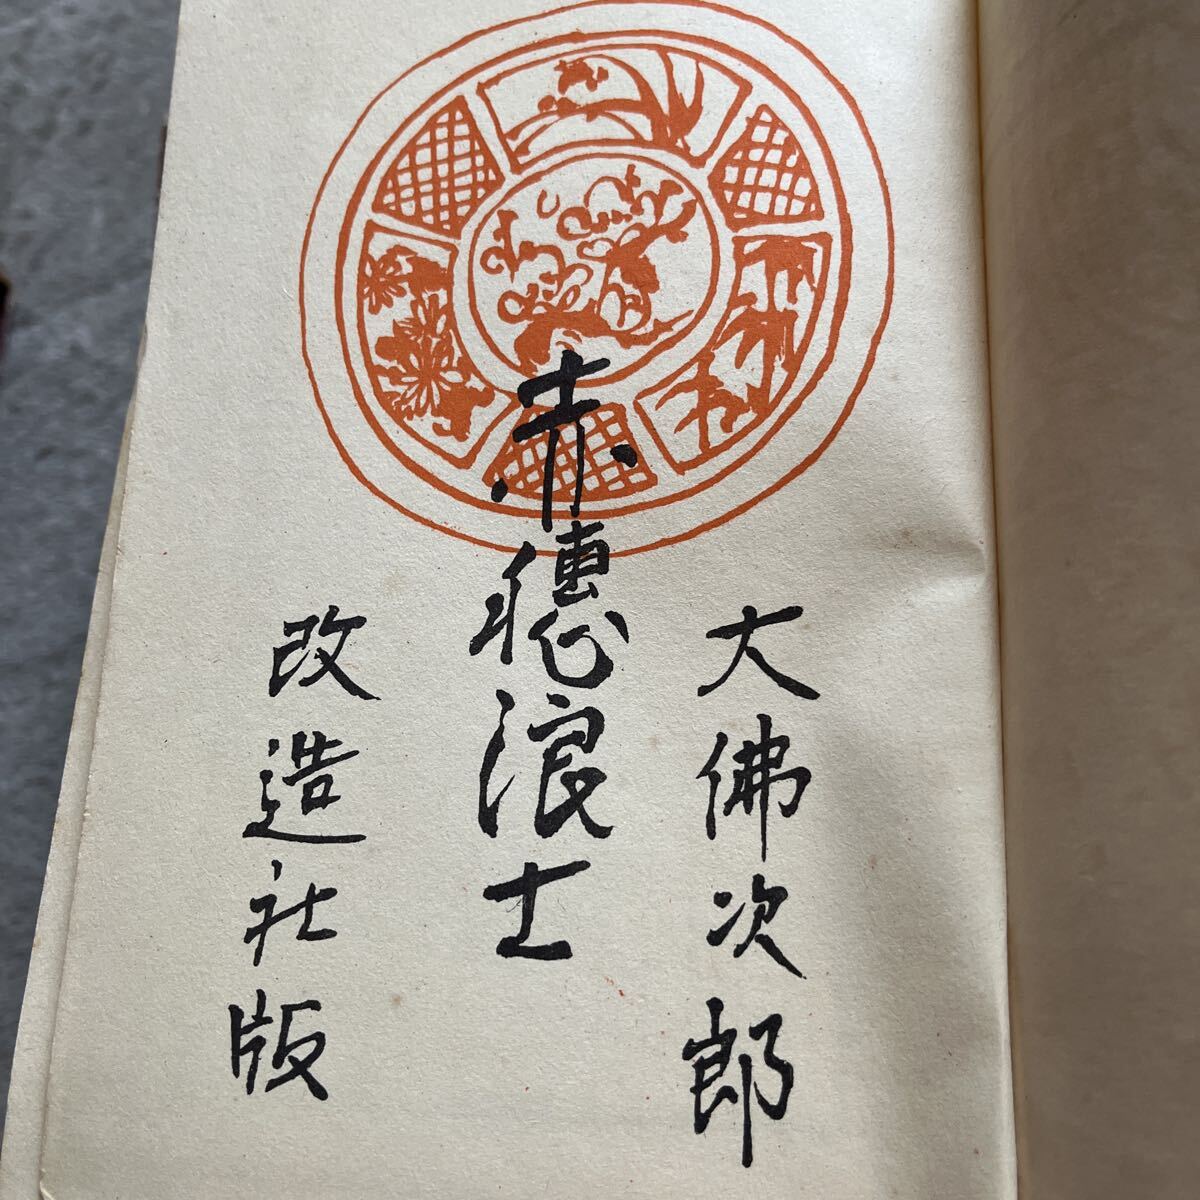 大佛次郎
赤穂浪士
改造社版